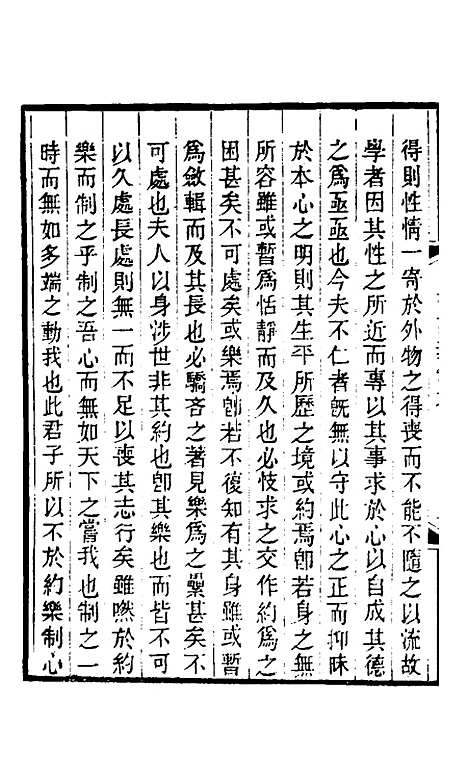 得則性情一寄於外物之得喪而不能不隨之以流故
學者因其性之所近而專以其事求於心以自成其德
之爲亟亟也今夫不仁者旣無以守此心之正而抑昧
於本心之明則其生平所歷之境或約焉卽若身之無
所容雖或暫爲恬靜而及久也必忮求之交作約爲之
困甚矣不可處矣或樂焉卽若不復知有其身雖或暫
爲斂輯而及其長也必驕吝之著見樂爲之纍甚矣不
可處也夫人以身涉世非其約也卽其樂也而皆不可
以久處長處則無一而不足以喪其志行矣雖喋於約
樂而制之乎制之吾心而無如天下之嘗我也制之一
時而無如多端之動我也此君子所以不於約樂制心